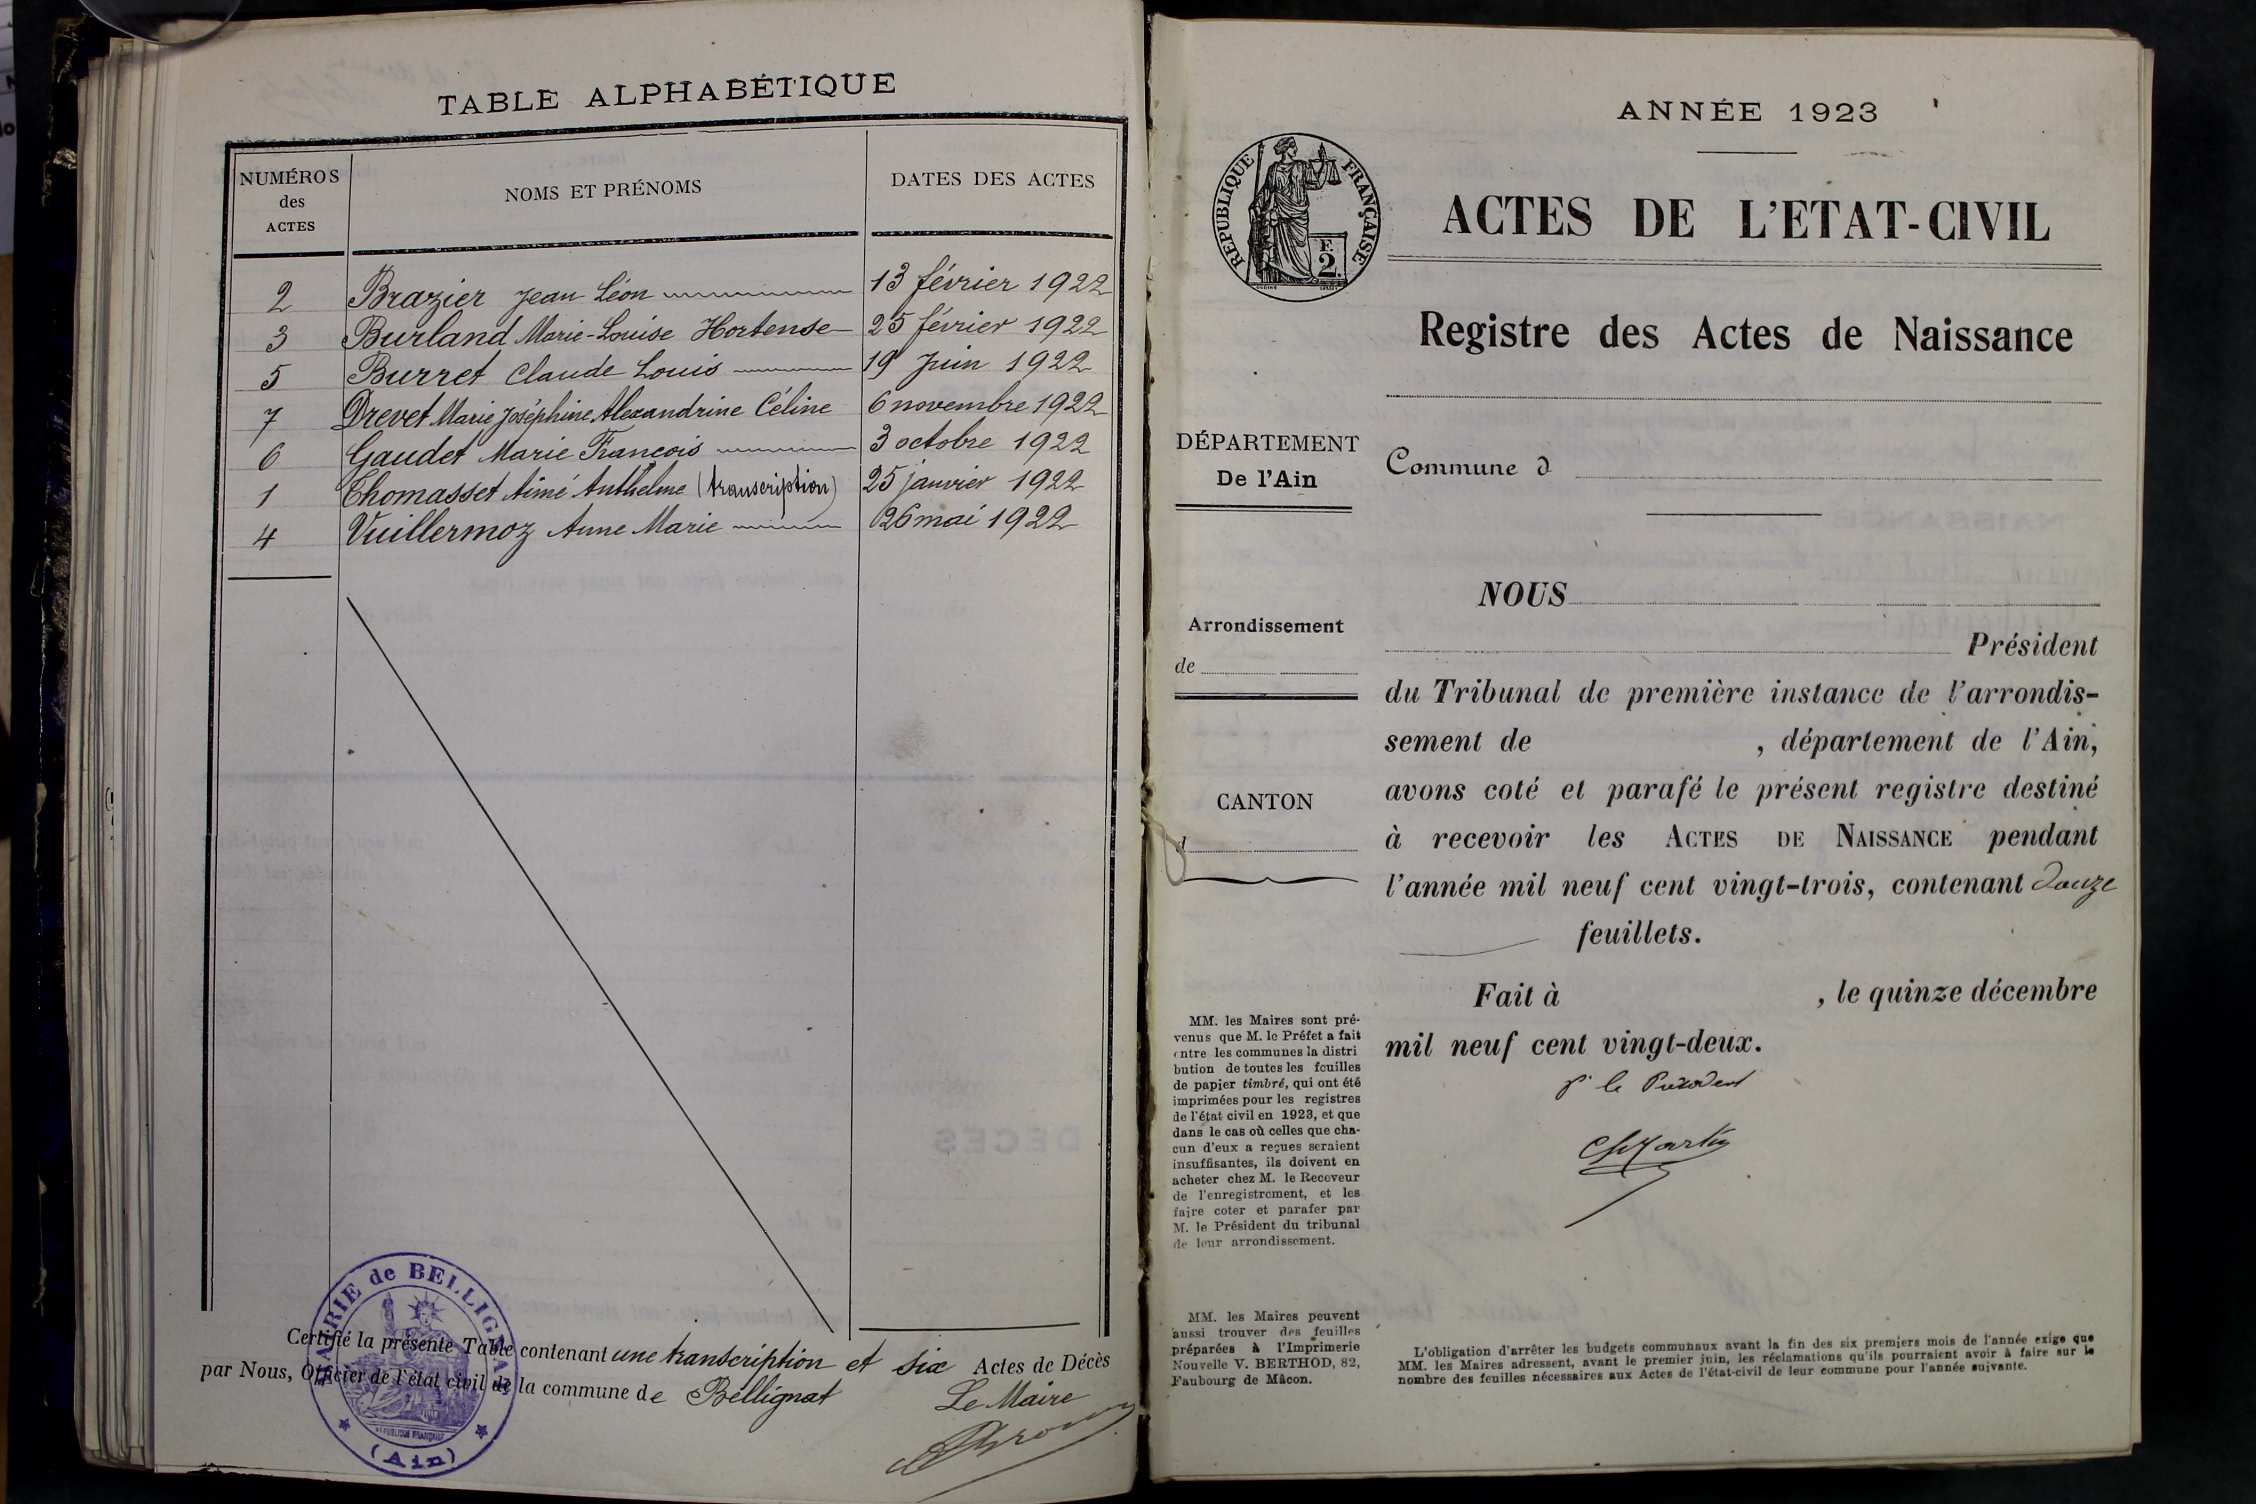 TABLE ALPHABÉTIQUE
NUMÉROS des ACTES
NOMS ET PRÉNOMS
DATES DES ACTES
2 Brazier Jean Léon 13 février 1922
3 Burland Marie-Louise Hortense 25 février 1922
5 Burret Claude Louis 19 Juin 1922
7 Drevet Marie Joséphine Alexandrine Céline 6 novembre 1922
6 Gaudet Marie François 3 octobre 1922
1 Thomasset Aimé Anthelme (transcription) 25 janvier 1922
4 Vuillermoz Anne Marie 26 mai 1922
Certifié la présente Table contenant une transcription et six Actes de Décès
par Nous, Officier de l'état civil de la commune de Bellignat
Le Maire
MAIRIE de BELLIGNAT
RÉPUBLIQUE FRANÇAISE
(Ain)
ANNÉE 1923
RÉPUBLIQUE FRANÇAISE
F.
2.
ACTES DE L'ETAT-CIVIL
Registre des Actes de Naissance
DÉPARTEMENT
De l'Ain
Commune d
Arrondissement
de
CANTON
d
NOUS
Président
du Tribunal de première instance de l'arrondis-
sement de , département de l'Ain,
avons coté et parafé le présent registre destiné
à recevoir les ACTES DE NAISSANCE pendant
l'année mil neuf cent vingt-trois, contenant douze
feuillets.
Fait à , le quinze décembre
mil neuf cent vingt-deux.
pr le Président
Ch Martin
MM. les Maires sont pré-
venus que M. le Préfet a fait
entre les communes la distri
bution de toutes les feuilles
de papier timbré, qui ont été
imprimées pour les registres
de l'état civil en 1923, et que
dans le cas où celles que cha-
cun d'eux a reçues seraient
insuffisantes, ils doivent en
acheter chez M. le Receveur
de l'enregistrement, et les
faire coter et parafer par
M. le Président du tribunal
de leur arrondissement.
MM. les Maires peuvent
aussi trouver des feuilles
préparées à l'Imprimerie
Nouvelle V. BERTHOD, 82,
Faubourg de Mâcon.
L'obligation d'arrêter les budgets communaux avant la fin des six premiers mois de l'année exige que
MM. les Maires adressent, avant le premier juin, les réclamations qu'ils pourraient avoir à faire sur le
nombre des feuilles nécessaires aux Actes de l'état-civil de leur commune pour l'année suivante.